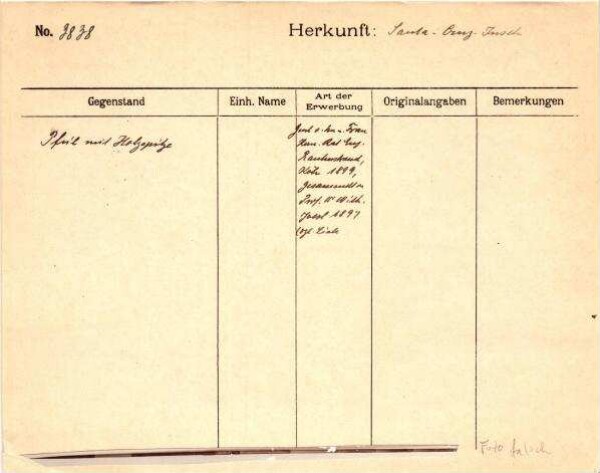 No. 3838
Herkunft: Santa-Cruz-Inseln
Gegenstand
Einh. Name
Art der
Erwerbung
Originalangaben
Bemerkungen
Pfeil mit Holzspitze
Frau
Rautenstrauch,
Köln 1899,
Gesammelt v.
Prof. Dr Wilh.
Joest 1897
Foto falsch